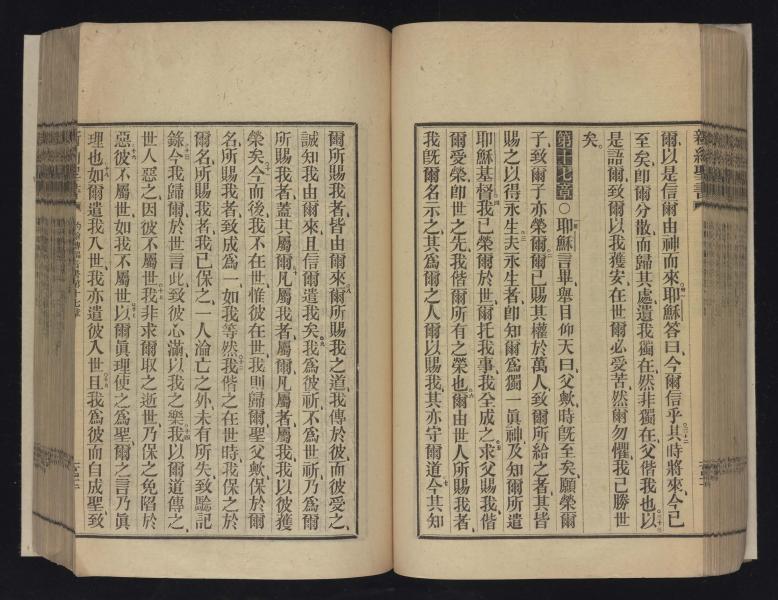 爾以是信爾由神而來耶穌答曰今爾信乎其時將來今已
至矣卽爾分散而歸其處遺我獨在然非獨在父偕我也以
是語爾致爾以我獲安在世爾必愛苦然爾勿懼我已勝世
矣
第十七章○耶穌言畢舉目仰天曰父歟時旣至矣願榮爾
子致爾子亦榮爾爾已賜其權於萬人致爾所給之者其皆
賜之以得永生夫永生者卽知爾爲獨一眞神及知爾所遣
耶穌基督我已榮爾於世爾托我事我全成之求父賜我偕
爾愛榮卽世之先我偕爾所有之榮也爾由世人所賜我者
我旣爾名示之其爲爾之人爾以賜我其亦守爾道今其知
爾所賜我者皆由爾來爾所賜我之道我傳於彼而彼受之
誠知我由爾來且信爾遣我矣我爲彼祈不爲世祈乃爲爾
所賜我者蓋其屬爾凡屬我者屬爾凡屬爾者屬我我以彼獲
榮矣今而後我不在世惟彼在世我則歸爾聖父歟保於爾
名所賜我者致成爲一如我等然我偕之在世時我保之於
爾名所賜我者我已保之一人淪亡之外未有所失致騐記
錄今我歸爾於世言此致彼心滿以我之樂我以爾道傳之
世人惡之因彼不屬世我非求爾取之逝世乃保之免陷於
惡彼不屬世如我不屬世以爾眞理使之爲聖爾之言乃眞
理也如爾遣我入世我亦遣彼入世且我爲彼而自成聖致